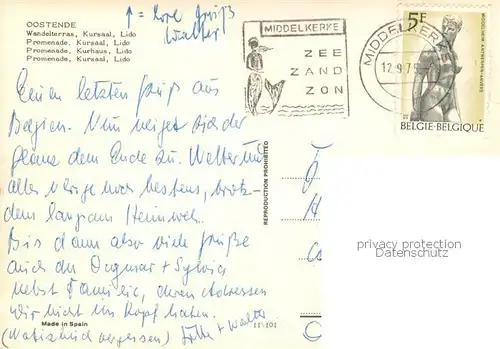 OOSTENDE
Wandelterras, Kursaal, Lido
Promenade, Kursaal, Lido
Promenade, Kurhaus, Lido
Promenade, Kursaal, Lido
↑ = Gruß
Walter
MIDDELKERKE
ZEE
ZAND
ZON
MIDDELKERKE
12.9.75
5F
BELGIE-BELGIQUE
Einen letzten Gruß aus
Belgien. Nun neiget sich der
ganze dem Ende zu. Walter und
alles klappt noch bestens, trotz-
dem langsam Heimweh.
Bis dann also viele Grüße
auch an Dagmar + Sylvia
nebst Familie, deren Adressen
wir nicht im Kopf haben.
(Notizbuch vergessen) + Walter
REPRODUCTION PROHIBITED
Made in Spain
privacy protection
Datenschutz